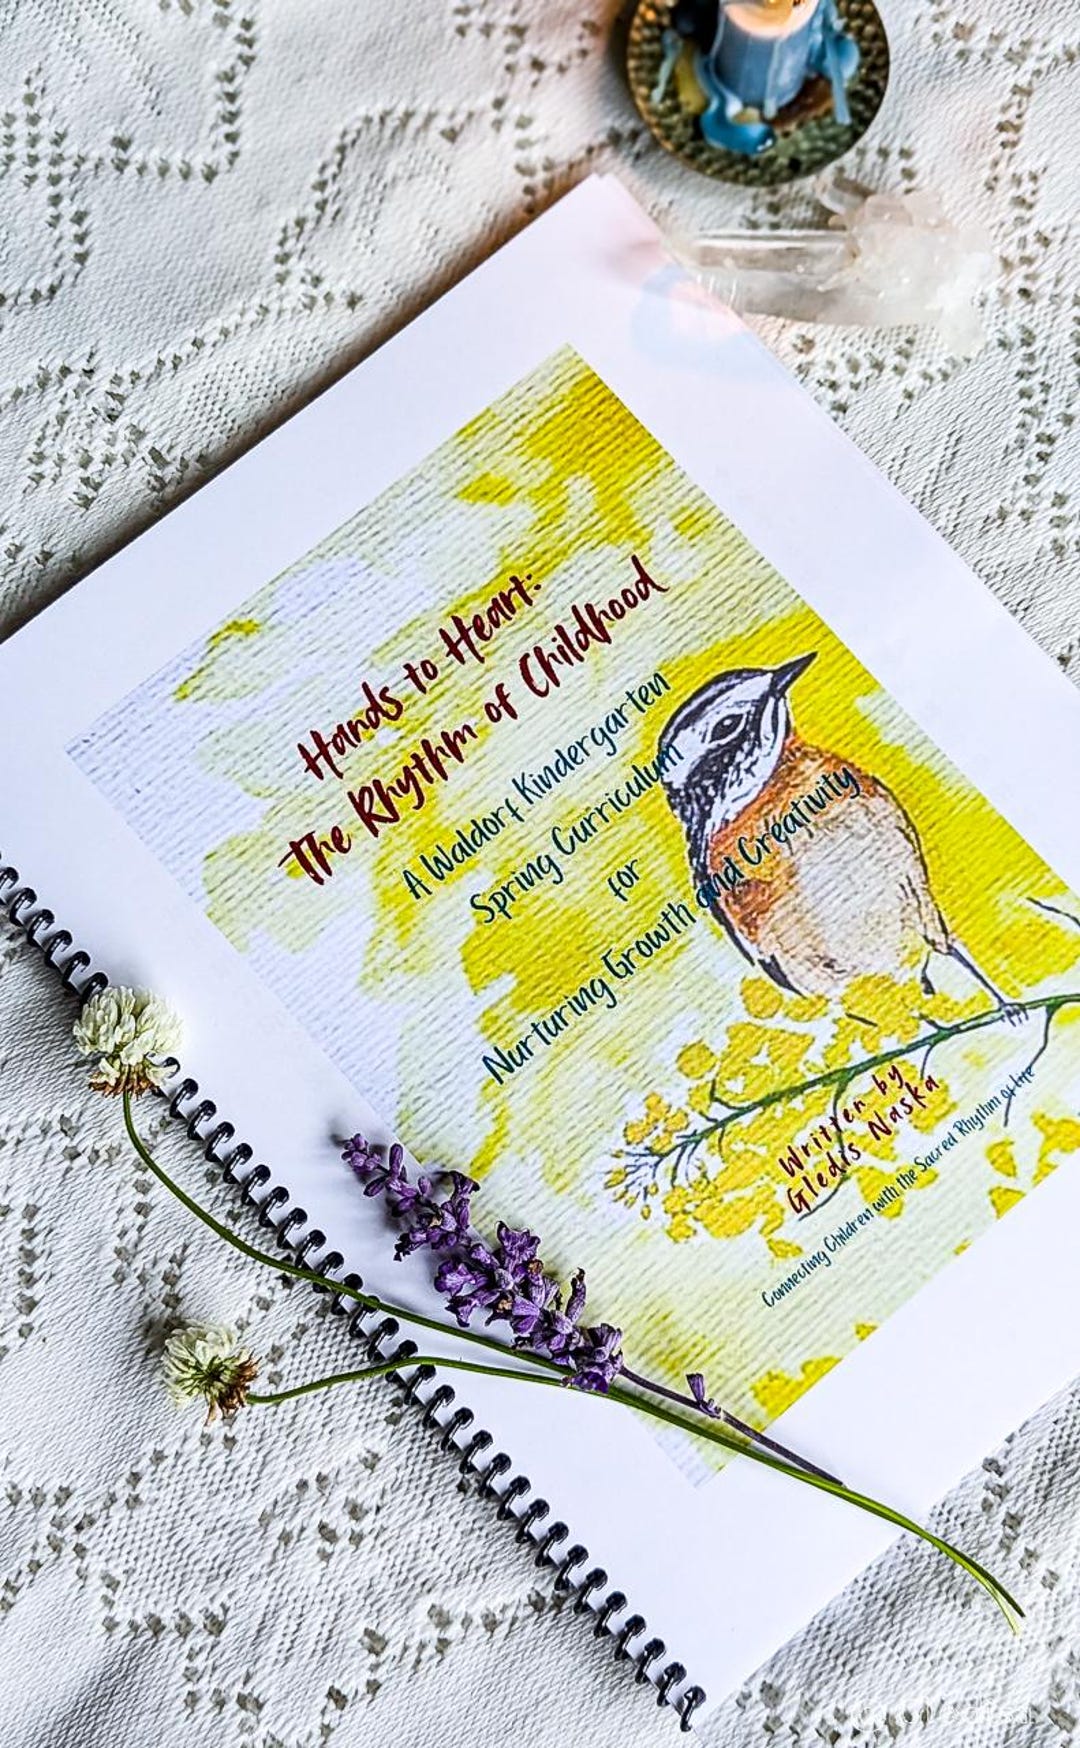 Hands to Heart:
The Rhythm of Childhood
A Waldorf Kindergarten
Spring Curriculum
for
Nurturing Growth and Creativity
Written by
Gledis Naska
Connecting Children with the Sacred Rhythm of Life